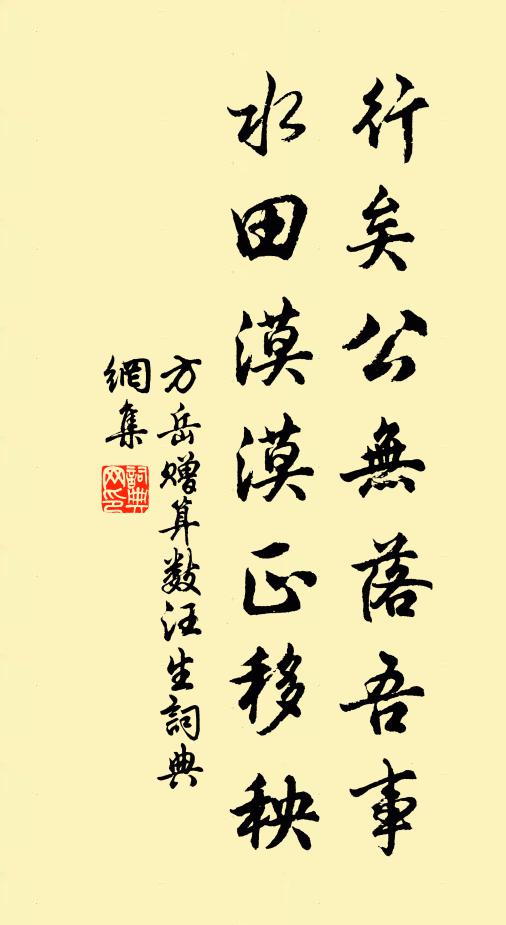 行矣公無落吾事
水田漠漠正移秧
方岳赠算数汪生詞典
網集
詞典
网印